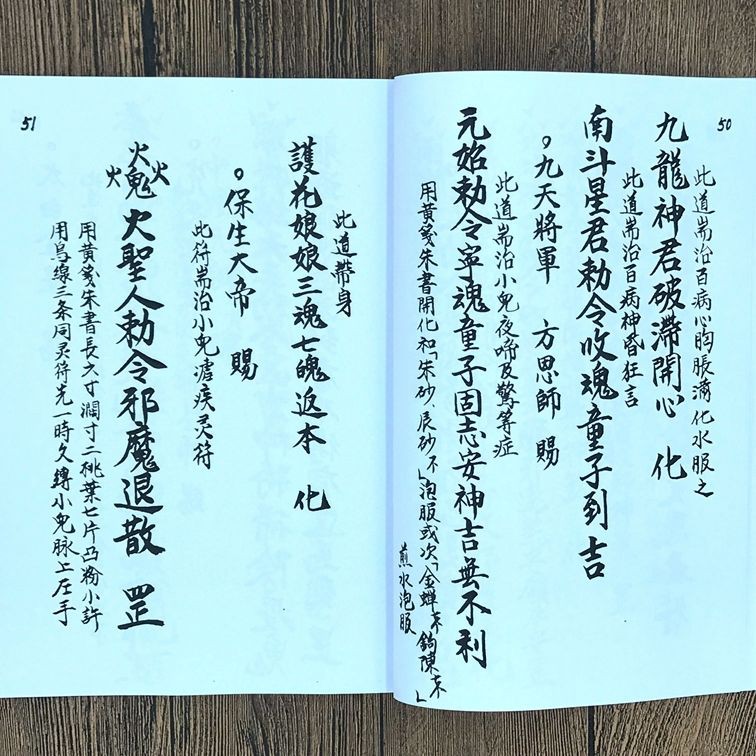 50
此道耑治百病心胸脹滿化水服之
九龍神君破滯開心　化
此道耑治百病神昏狂言
南斗星君勅令收魂童子到吉
。九天將軍　方思師　賜
此道耑治小兒夜啼及驚等症
元始勅令寧魂童子固志安神吉無不利
用黃箋朱書開化和「朱砂、辰砂不」泡服或次「金蟬末鈎陳末」
煎水泡服
51
此道帶身
護花娘娘三魂七魄返本　化
。保生大帝　賜
此符耑治小兒瘧疾灵符
火火火鬼火聖人勅令邪魔退散　罡
用黃箋朱書長六寸濶寸二桃葉七片凸粉小許
用烏線三条同灵符先一時久縛小兒脉上左手